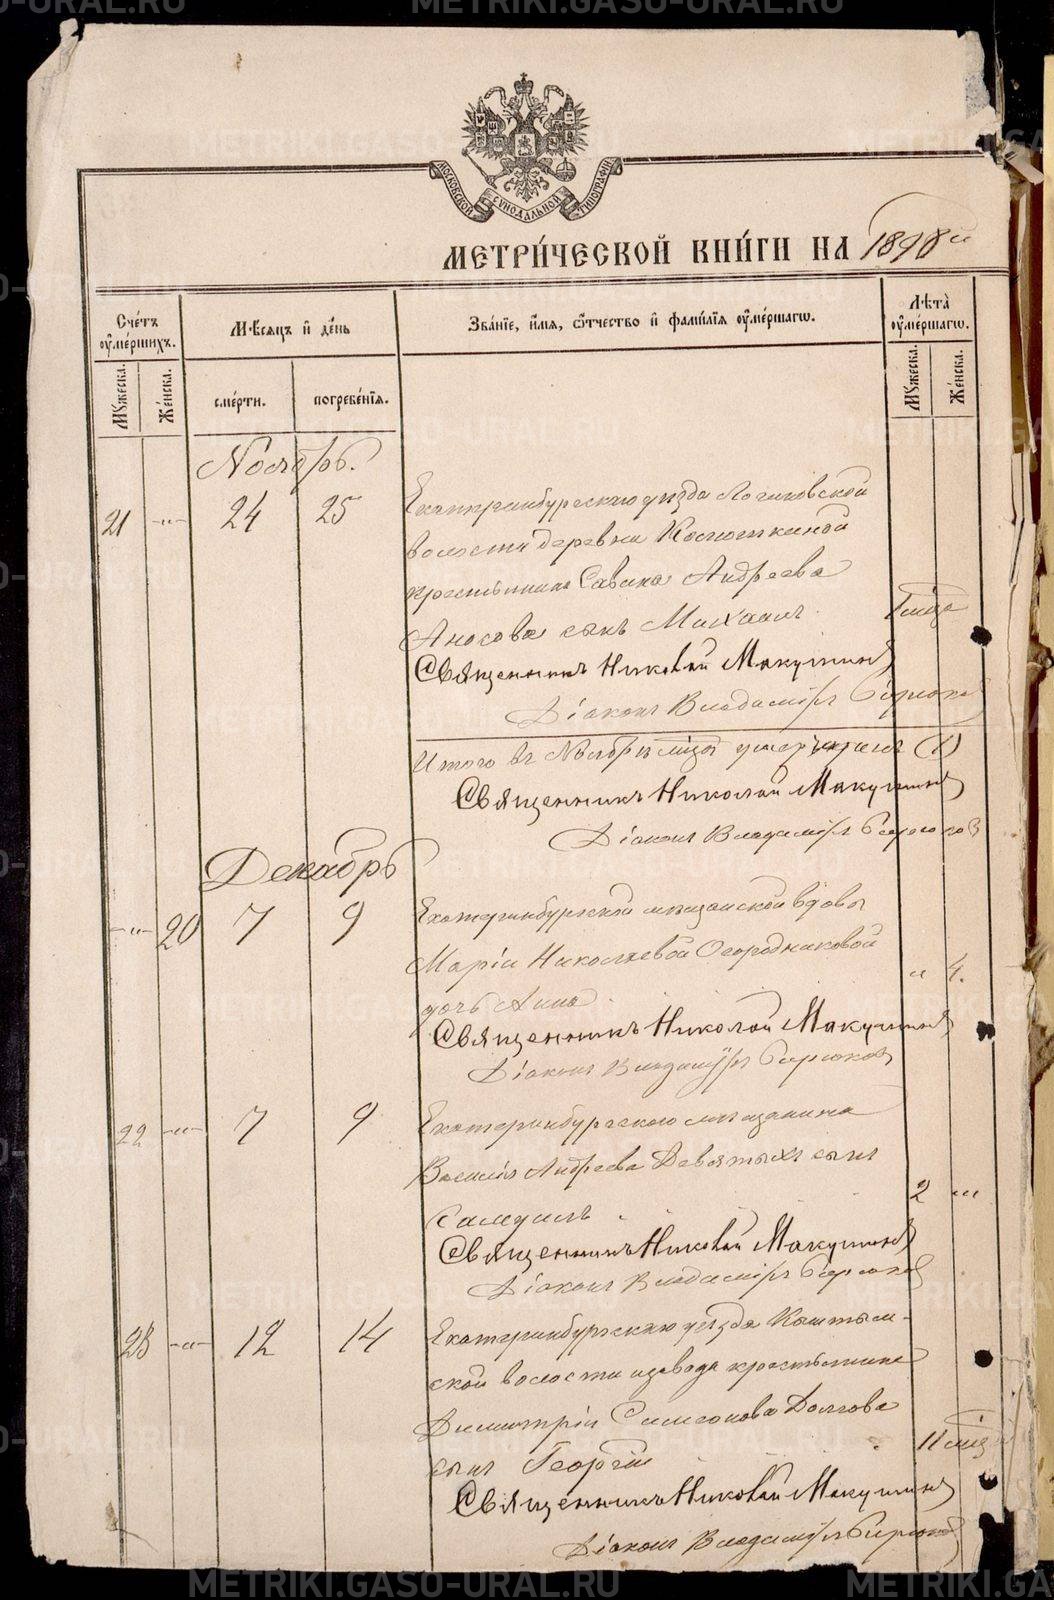 МОСКОВСКОЙ СѴНОДАЛЬНОЙ ТИПОГРАФІИ
МЕТРИ́ЧЕСКОЙ КНИ́ГИ НА 1898й
Сче́тъ оу҆ме́ршихъ.
Мѣ́сяцъ и҆ де́нь
Зва́нїе, и҆́мѧ, ѻ҆́тчество и҆ фами́лїѧ оу҆ме́ршагѡ.
Лѣ́та оу҆ме́ршагѡ.
Мꙋ́жеска.
Же́нска.
сме́рти.
погребе́нїѧ.
Мꙋ́жеска.
Же́нска.
Ноябрь.
21 -"- 24 25 Екатеринбургскаго уѣзда Логиновской
волости деревни Костоткиной
крестьянина Савина Андреева
Аносова сынъ Михаилъ
Священникъ Николай Макушинъ
Діаконъ Владиміръ Бирюковъ
Итого въ Ноябрѣ мѣсяцѣ умерло (1)
Священникъ Николай Макушинъ
Діаконъ Владиміръ Бирюковъ
Декабрь
-"- 20 7 9 Екатеринбургской мѣщанской вдовы
Маріи Николаевой Огородниковой " 4.
дочь Анна
Священникъ Николай Макушинъ
Діаконъ Владиміръ Бирюковъ
22 -"- 7 9 Екатеринбургскаго мѣщанина
Василія Андреева Девятыхъ сынъ
Самуилъ 2 -"-
Священникъ Николай Макушинъ
Діаконъ Владиміръ Бирюковъ
23 -"- 12 14 Екатеринбургскаго уѣзда Кыштым-
ской волости и завода крестьянина
Димитрія Симеонова Долгова
сынъ Георгій 11 мѣс
Священникъ Николай Макушинъ
Діаконъ Владиміръ Бирюковъ
METRIKI.GASO-URAL.RU